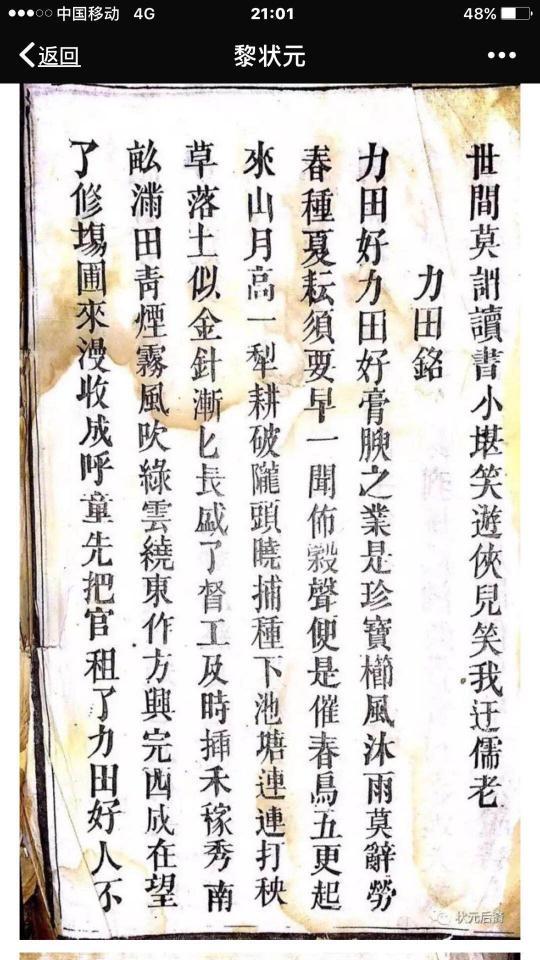 中国移动 4G 21:01 48%
返回 黎状元
世間莫謂讀書小堪笑遊俠兒笑我迂儒老
力田銘
力田好力田好膏腴之業是珍寶櫛風沐雨莫辭勞
春種夏耘須要早一聞佈榖聲便是催春鳥五更起
來山月高一犁耕破隴頭曉捕種下池塘連連打秧
草落土似金針漸匕長盛了督工及時插禾稼秀南
畝滿田青煙霧風吹綠雲繞東作方興完西成在望
了修塲圃來漫收成呼童先把官租了力田好人不
状元后裔